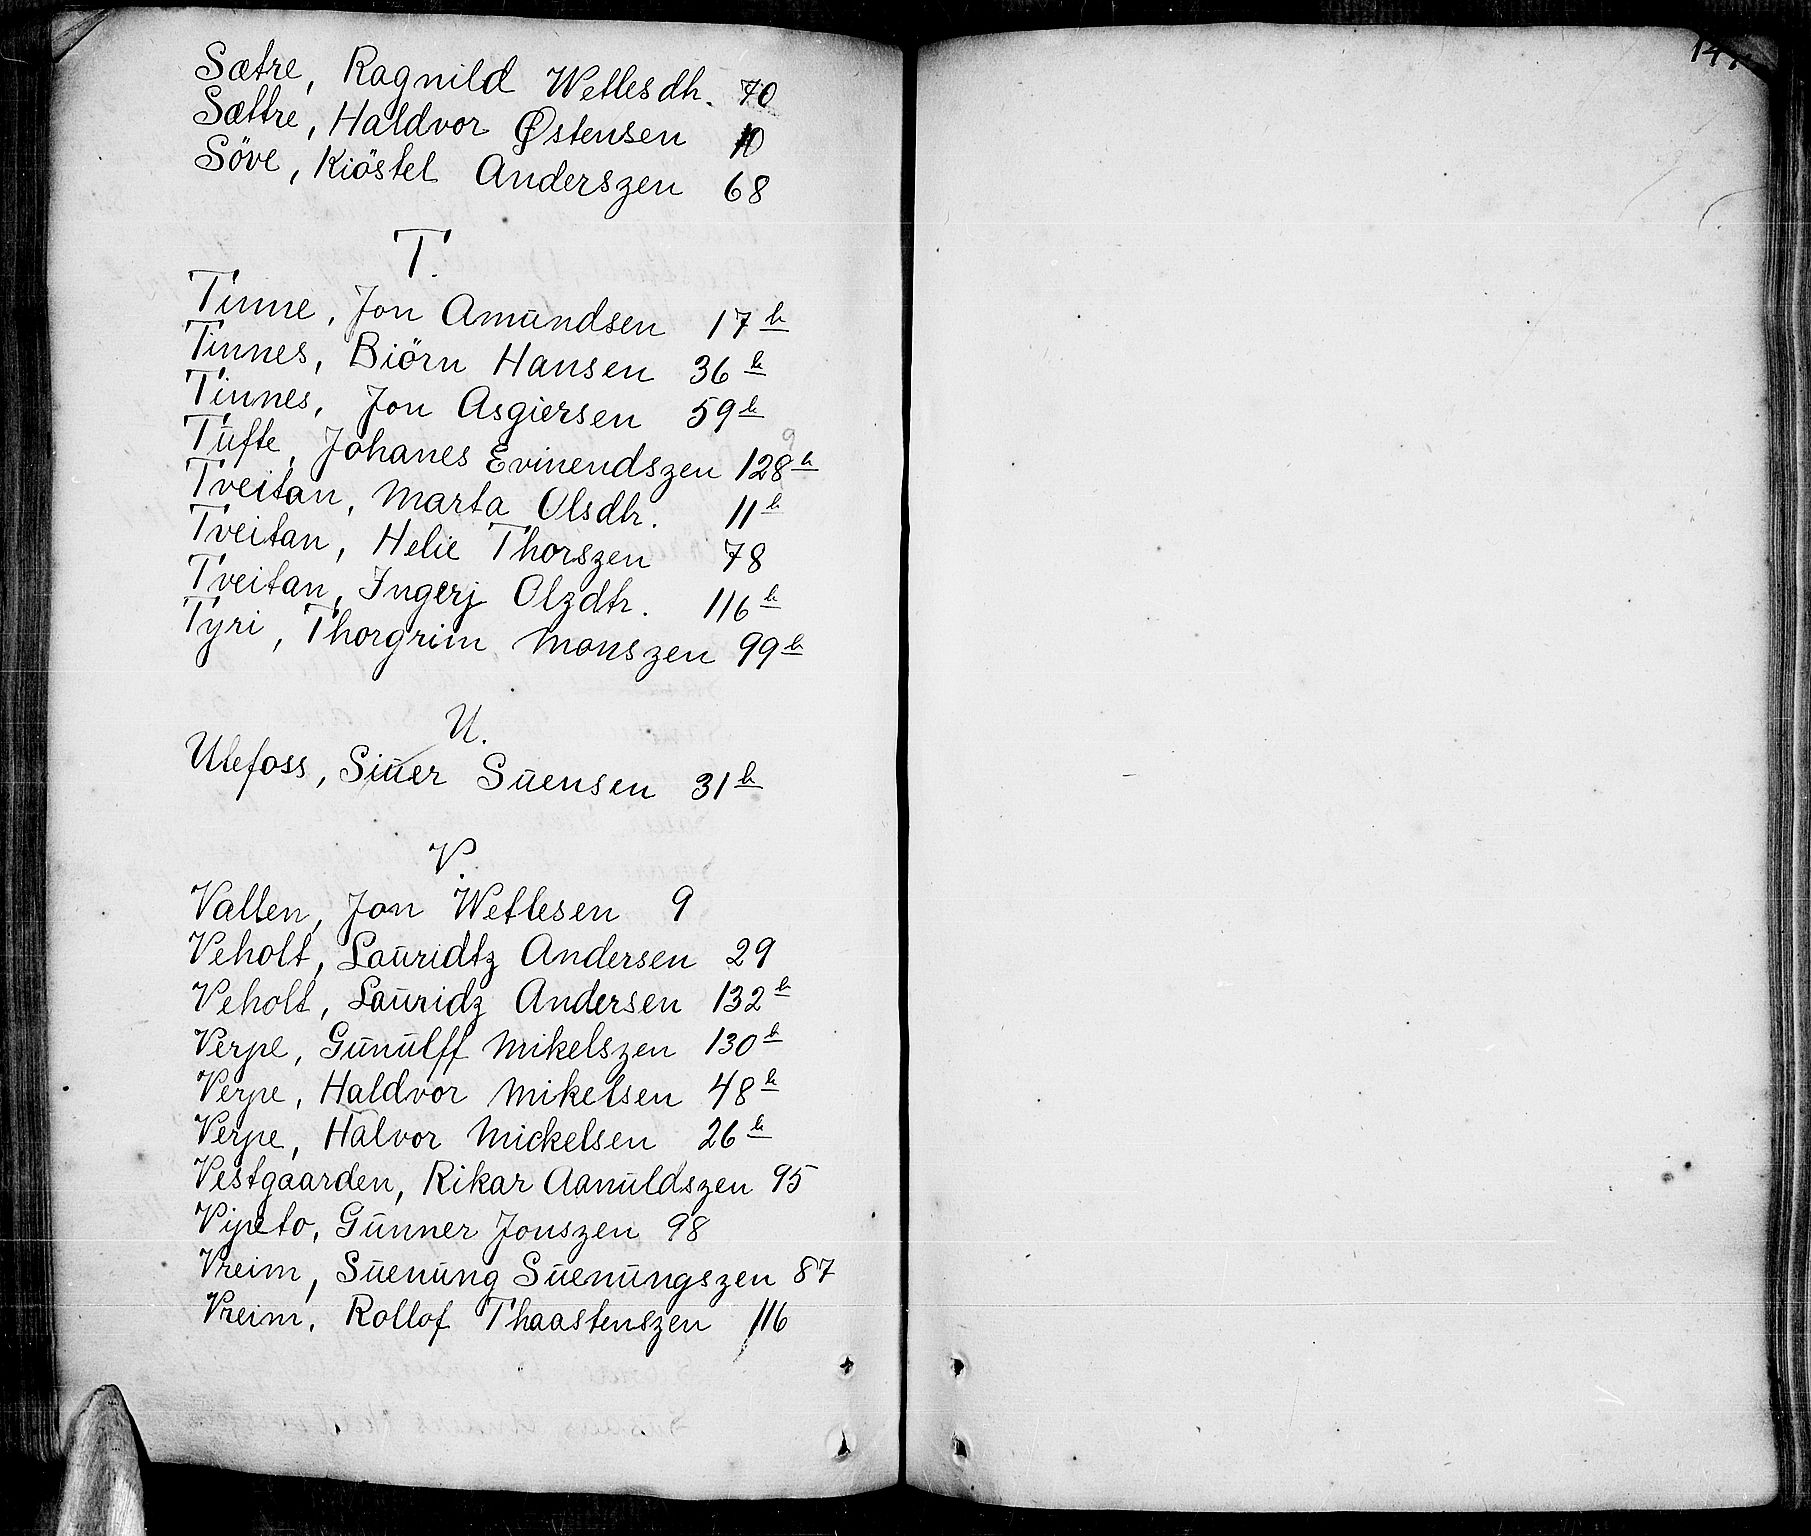 Sætre, Ragnild Wetlesdtr. 70
Sættre, Haldvor Østensen 10
Söve, Kiöstel Anderszen 68
T.
Tinne, Jon Amŭndsen 17 b
Tinnes, Biörn Hansen 36 b
Tinnes, Jon Asgiersen 59 b
Tŭfte, Johanes Evinendszen 128 b
Tveitan, Marta Olsdtr. 11 b
Tveitan, Helie Thorszen 78
Tveitan, Ingerj Olzdtr. 116 b
Tyri, Thorgrim Monszen 99 b
U.
Ulefoss, Siŭer Sŭensen 31 b
V.
Vallen, Jon Wetlesen 9
Veholt, Laŭridtz Andersen 29
Veholt, Laŭridz Andersen 132 b
Verpe, Gŭnŭlff Mikelszen 130 b
Verpe, Haldvor Mikelsen 48 b
Verpe, Halvor Mickelsen 26 b
Vestgaarden, Rikar Aanŭldszen 95
Vipeto, Gŭnner Jonszen 98
Vreim, Sŭenŭng Sŭenŭngszen 87
Vreim, Rollof Thaastenszen 116